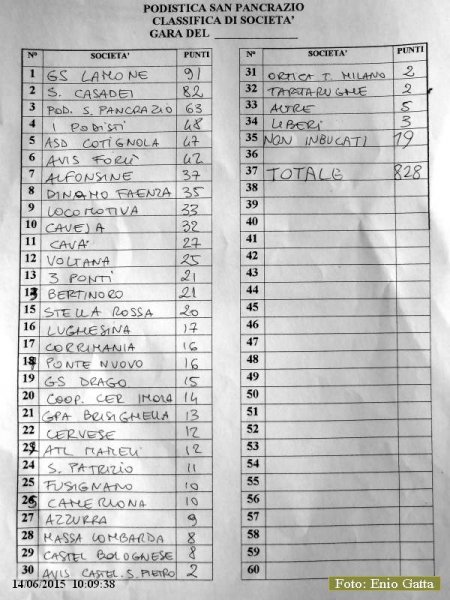 PODISTICA SAN PANCRAZIO
CLASSIFICA DI SOCIETA'
GARA DEL
N° SOCIETA' PUNTI
1 GS LAMONE 91
2 S. CASADEI 82
3 POD. S. PANCRAZIO 63
4 I PODISTI 48
5 ASD COTIGNOLA 47
6 AVIS FORLÌ 42
7 ALFONSINE 37
8 DINAMO FAENZA 35
9 LOCOMOTIVA 33
10 CAVEJA 32
11 CAVA' 27
12 VOLTANA 25
13 3 PONTI 21
13 BERTINORO 21
15 STELLA ROSSA 20
16 LUGHESINA 17
17 CORRIMANIA 16
18 PONTE NUOVO 16
19 GS DRAGO 15
20 COOP. CER IMOLA 14
21 GPA BRISIGHELLA 13
22 CERVESE 12
23 ATL MAMELI 12
24 S. PATRIZIO 11
25 FUSIGNANO 10
26 CAMERLONA 10
27 AZZURRA 9
28 MASSA LOMBARDA 8
29 CASTEL BOLOGNESE 8
30 AVIS CASTEL S. PIETRO 2
N° SOCIETA' PUNTI
31 ORTICA T. MILANO 2
32 TARTARUGHE 2
33 ALTRE 5
34 LIBERI 3
35 NON INBUCATI 19
36
37 TOTALE 828
38
39
40
41
42
43
44
45
46
47
48
49
50
51
52
53
54
55
56
57
58
59
60
14/06/2015 10:09:38
Foto: Enio Gatta